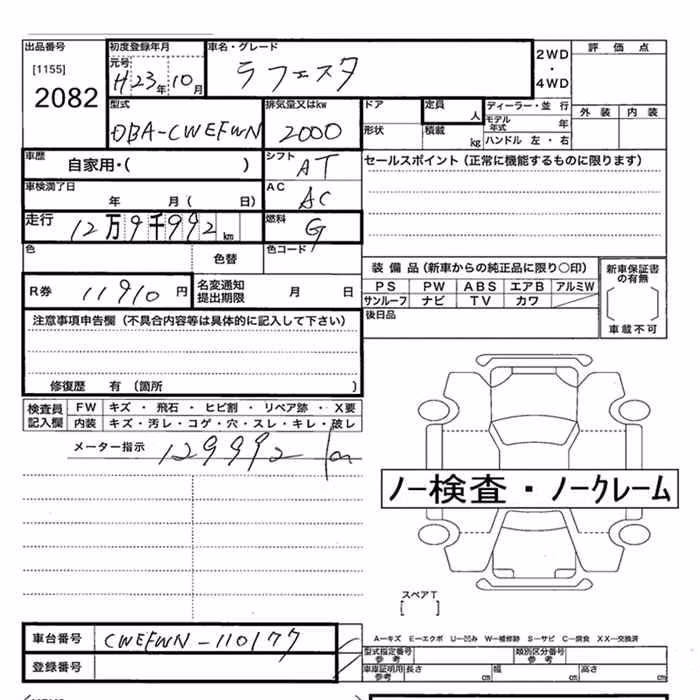 出品番号
[1155]
2082
初度登録年月
元号
H23年10月
車名・グレード
ラフェスタ
2WD
・
4WD
評価点
外装 内装
型式
DBA-CWEFWN
排気量又はkw
2000
ドア
形状
定員
人
積載
kg
ディーラー・並行
モデル年式 年
ハンドル 左・右
車歴
自家用・( )
シフト
AT
セールスポイント (正常に機能するものに限ります)
車検満了日
年 月( 日)
AC
AC
走行
12万9千992km
燃料
G
色
色替
色コード
装備品 (新車からの純正品に限り〇印)
PS PW ABS エアB アルミW
サンルーフ ナビ TV カワ
新車保証書の有無
車載不可
R券 11910円
名変通知提出期限 月 日
後日品
注意事項申告欄 (不具合内容等は具体的に記入して下さい)
修復歴 有 (箇所 )
検査員記入欄
FW キズ・飛石・ヒビ割・リペア跡・X要
内装 キズ・汚レ・コゲ・穴・スレ・キレ・破レ
メーター指示 129992 km
ノー検査・ノークレーム
スペアT
[ ]
車台番号 CWEFWN-110177
A-キズ E-エクボ U-凹み W-補修跡 S-サビ C-腐食 XX-交換済
型式指定番号 参考
類別区分番号 参考
登録番号
車庫証明用参考 長さ cm 幅 cm 高さ cm